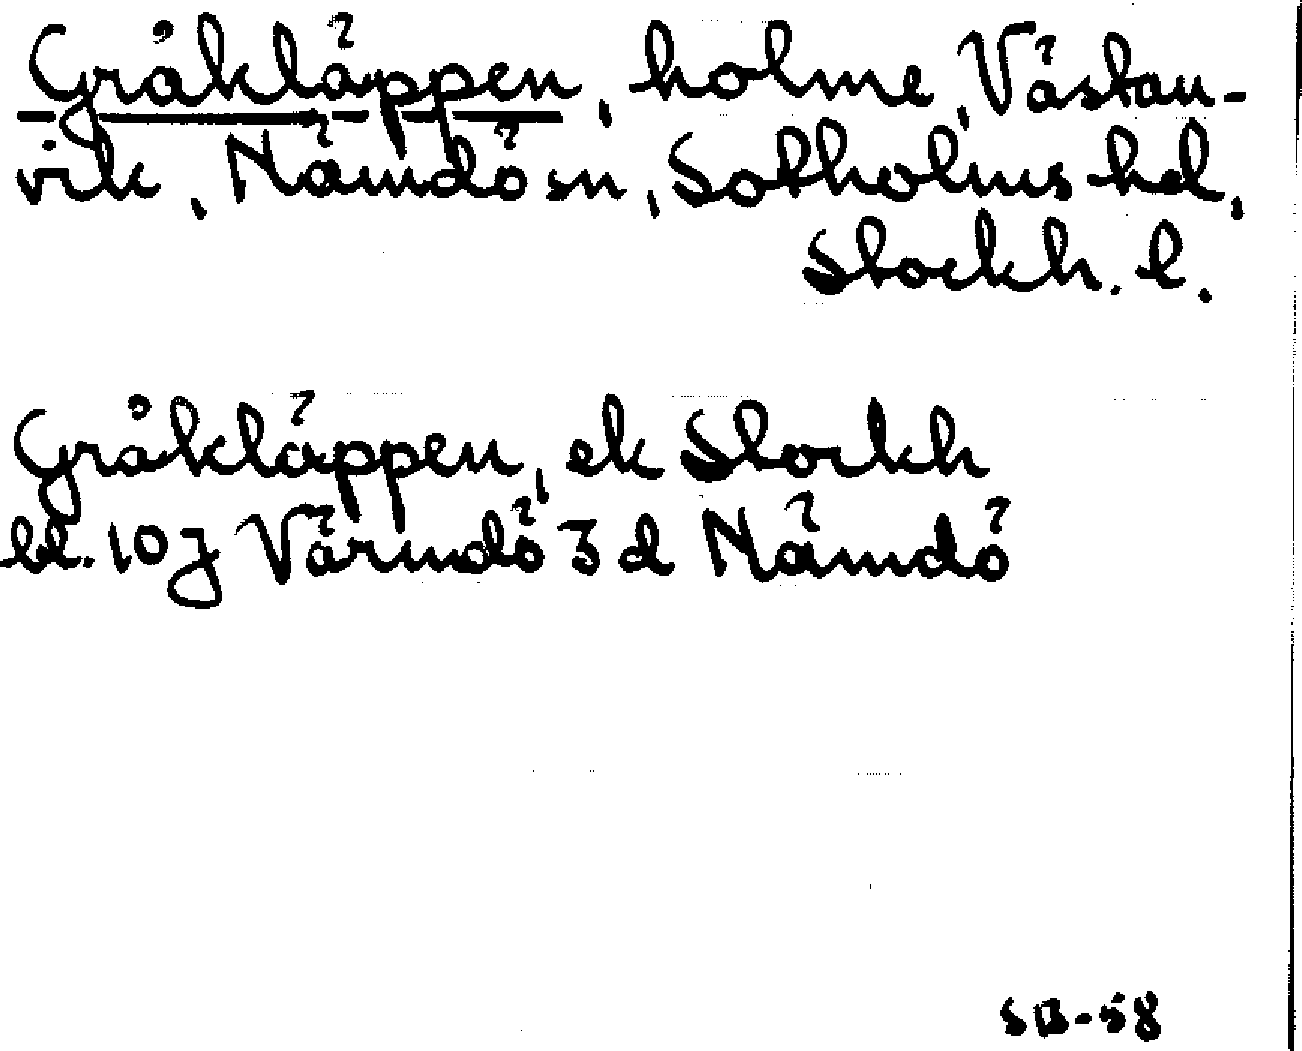 Gråkläppen, holme, Västan-
vik, Nämdö sn, Sotholms hd,
Stockh. l.
Gråkläppen, ek Stockh
bl. 10 j Värmdö 3 d Nämdö
SB-58